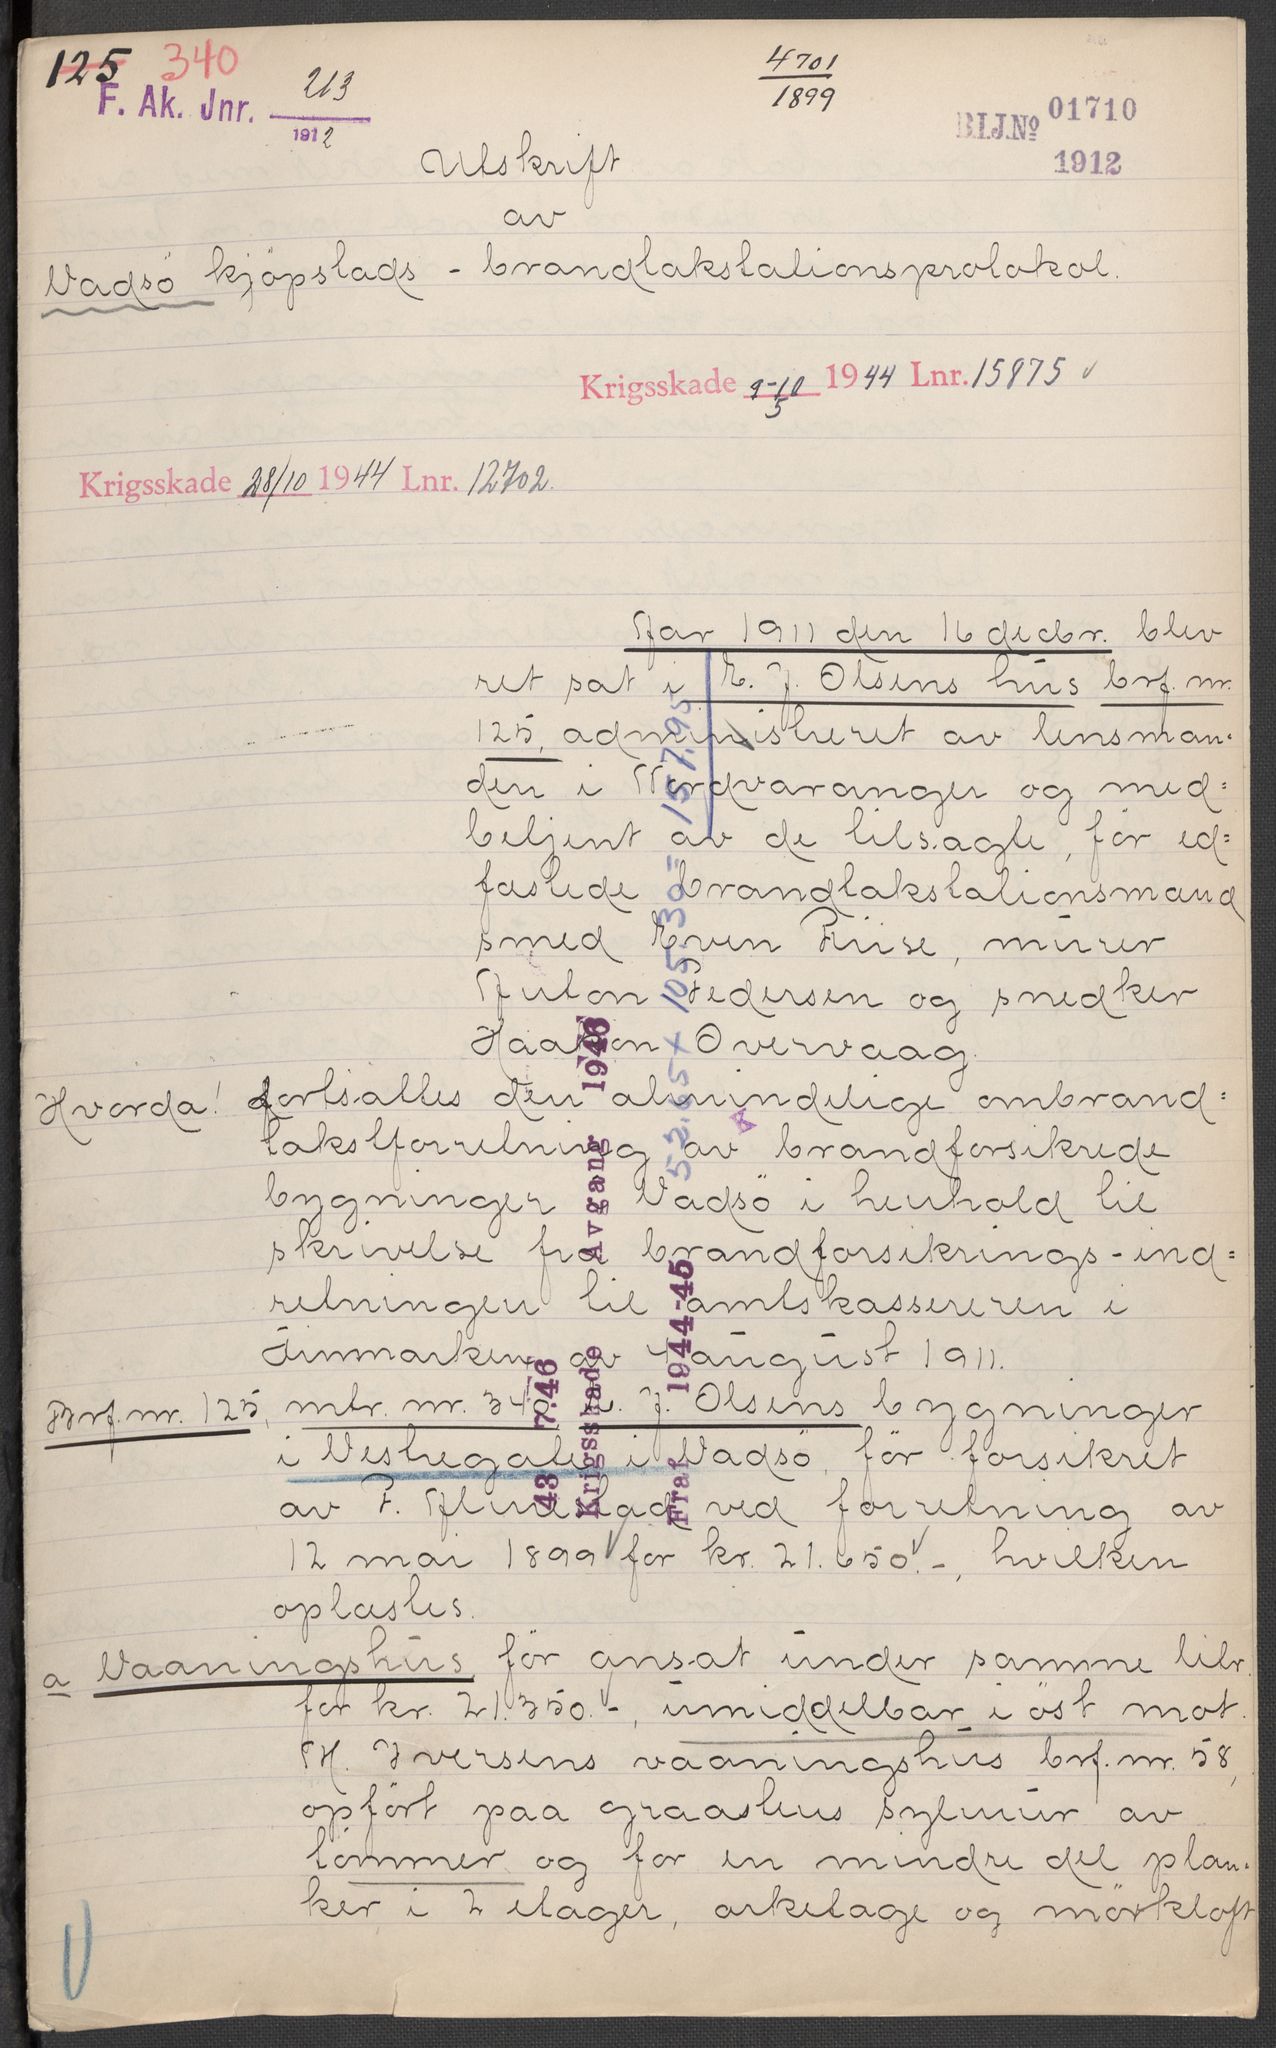 125 340
4701
1899
F. Ak. Jnr. 213
1912
B.I.J.No 01710
1912
Utskrift
av
Vadsö kjöpstads - brandtakstationsprotokol.
Krigsskade 9-10/5 1944 Lnr. 15875 ✓
Krigsskade 28/10 1944 Lnr. 12702.
Aar 1911 den 16 decbr. blev
ret sat i E. J. Olsens hus brf. nr.
125, administreret av lensman-
den i Nordvaranger og med=
betjent av de tilsagte, för ed=
fæstede brandtakstationsmænd
smed Even Riise, murer
Anton Pedersen og snedker
Haakon Overvaag.
Hvorda! fortsattes den almindelige ombrand=
takstforretning av brandforsikrede
bygninger i Vadsö i henhold til
skrivelse fra brandforsikrings-ind=
retningen til amtskassereren i
Finmarken av 4 august 1911.
Brf. nr. 125, mtr. nr. 340 E. J. Olsens bygninger
i Vestregate i Vadsö, för forsikret
av P. Almestad ved forretning av
12 mai 1899 for kr. 21.650.-, hvilken
oplæstes.
a Vaaningshus för ansat under samme litr.
for kr. 21.350.-, umiddelbar i öst mot
M. Iversens vaaningshus brf. nr. 58,
opfört paa graastens sylmur av
tömmer og for en mindre del plan-
ker i 2 etager, arketage og mörkloft
43 7.46
Krigsskade Avgang 1946
Fraf 1944-45
52.65 x 105.30 = 157.95